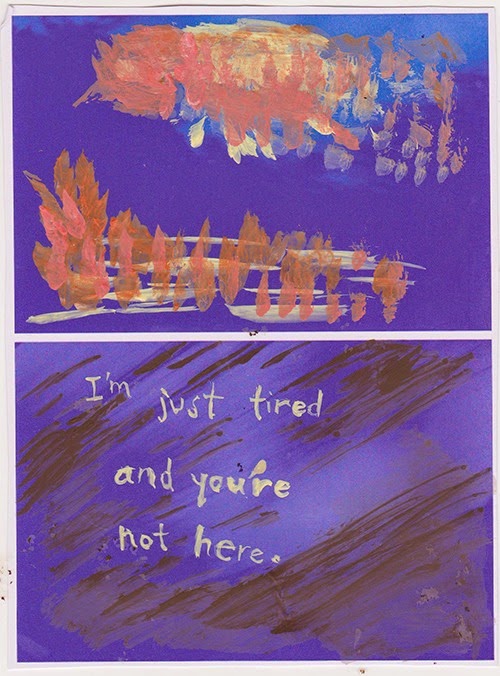 I'm just tired
and you're
not here.